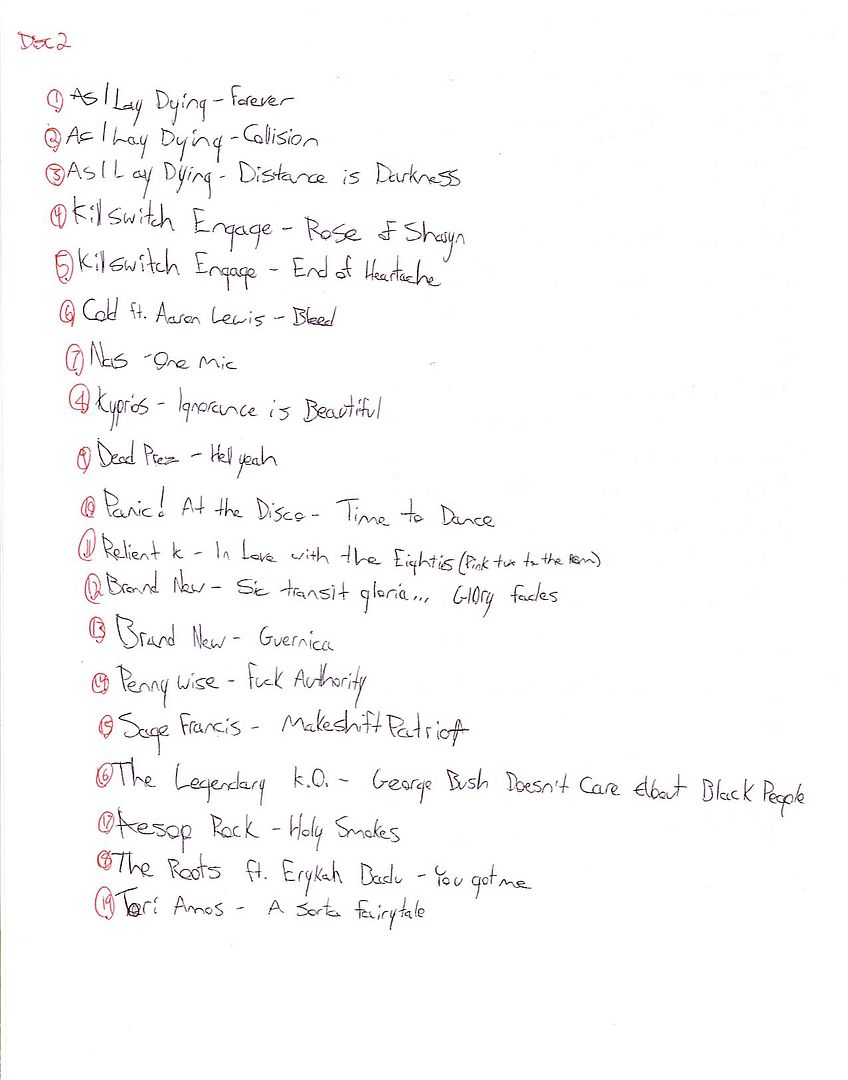 Disc 2
① As I Lay Dying - Forever
② As I Lay Dying - Collision
③ As I Lay Dying - Distance is Darkness
④ Killswitch Engage - Rose of Sharyn
⑤ Killswitch Engage - End of Heartache
⑥ Cold ft. Aaron Lewis - Bleed
⑦ Nas - One Mic
④ Kyprios - Ignorance is Beautiful
⑨ Dead Prez - Hell yeah
⑩ Panic! At the Disco - Time to Dance
⑪ Relient k - In Love with the Eighties (Pink tux to the prom)
⑫ Brand New - Sic transit gloria... Glory fades
⑬ Brand New - Guernica
⑭ Penny wise - Fuck Authority
⑮ Sage Francis - Makeshift Patriot
⑯ The Legendary K.O. - George Bush Doesn't Care About Black People
⑰ Aesop Rock - Holy Smokes
⑱ The Roots ft. Erykah Badu - You got me
⑲ Tori Amos - A Sorta fairytale